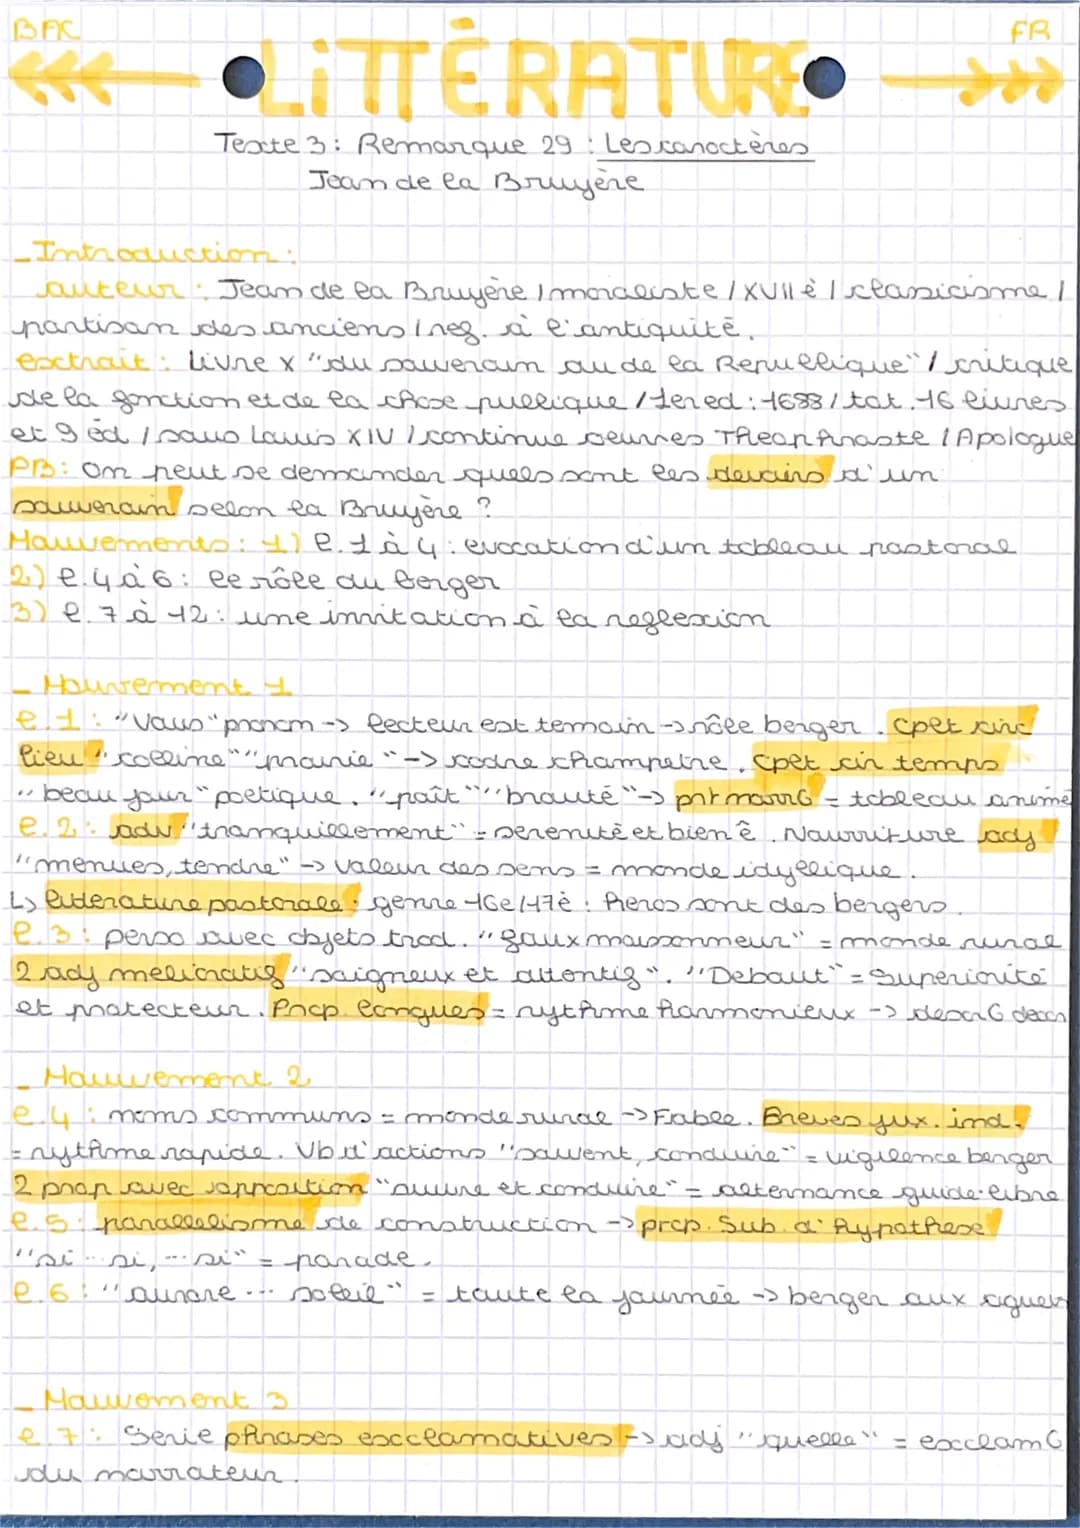 BAC
FR
LiTTÉRATURE
Texte 3 : Remarque 29 : Les caractères
Jean de la Bruyère
_ Introduction :
auteur : Jean de la Bruyère / moraliste / XVIIè / classicisme /
partisan des anciens / ref. à l'antiquité.
extrait : Livre X "du souverain ou de la Republique" / critique
de la fonction et de la chose publique / 1er ed : 1688 / tot. 16 livres
et 9 éd / sous Louis XIV / continue oeuvres Theophraste / Apologue
PB : On peut se demander quels sont les devoirs d'un
souverain selon la Bruyère ?
Mouvements : 1) l. 1 à 4 : evocation d'un tableau pastoral
2) l. 4 à 6 : le rôle du berger
3) l. 7 à 12 : une invitation à la reflexion
_ Mouvement 1
l. 1 : "Vous" pronom -> lecteur est temoin -> rôle berger . Cplt circ
lieu "colline" "prairie" -> cadre champetre . Cplt cir temps
"beau jour" poetique . "paît" "broute" -> pnt narr° = tableau animé
l. 2 : adv "tranquillement" = serenité et bien ê . Nourriture adj
"menues, tendre" -> valeur des sens = monde idyllique .
L> litterature pastorale : genre 16e/17è : heros sont des bergers .
l. 3 : perso avec objets trad. "faux moissonneur" = monde rural
2 adj melioratifs "soigneux et attentif". "Debout" = Superiorité
et protecteur . Prop. longues = rythme harmonieux -> descr°
_ Mouvement 2
l. 4 : noms communs = monde rural -> Fable . Breves jux. ind.
= rythme rapide . Vb d'actions "suivent, conduire" = vigilence berger
2 prop avec opposition "suivre et conduire" = alternance guide-libre
l. 5 : parallelisme de construction -> prop. Sub. d'hypothese
"si ... si, ... si" = parade .
l. 6 : "aurore ... soleil" = toute la journée -> berger aux aguets
_ Mouvement 3
l. 7 : Serie phrases exclamatives -> adj "quelle" = exclam°
du narrateur .